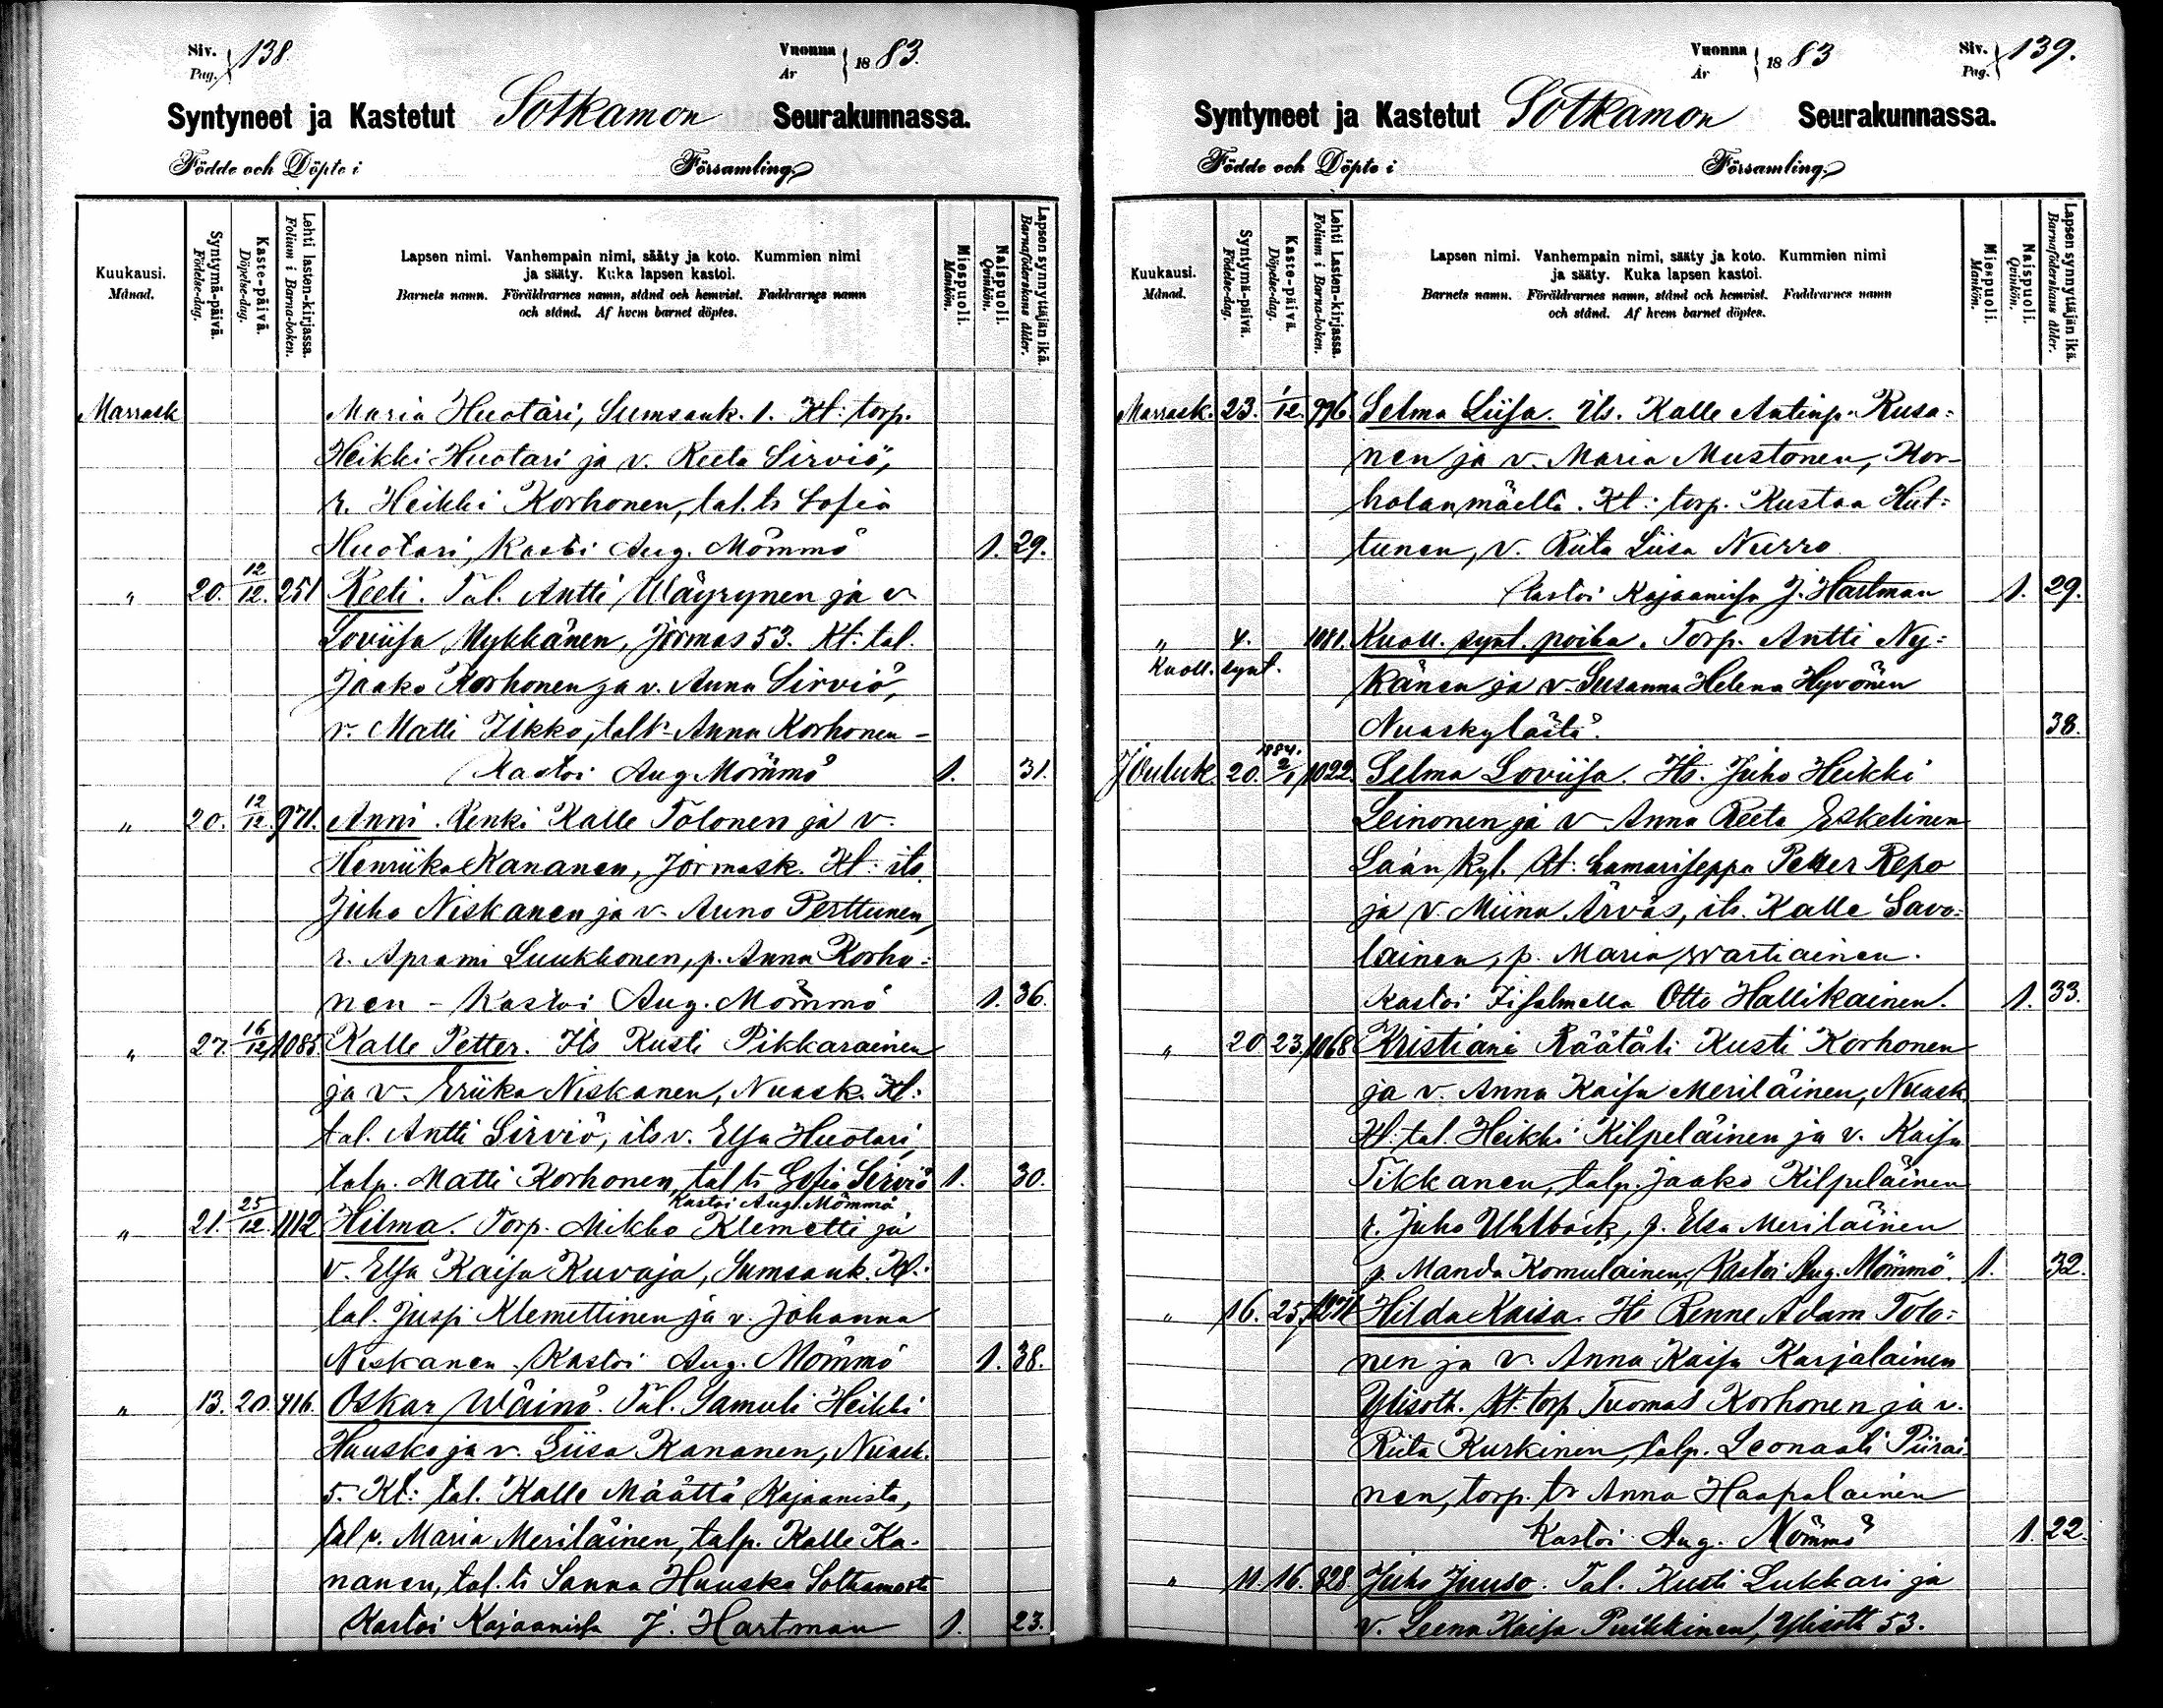 Siv. Pag. } 138.
Vuonna År } 1883.
Syntyneet ja Kastetut Sotkamon Seurakunnassa.
Födde och Döpte i Församling.
Kuukausi. Månad.
Syntymä-päivä. Födelse-dag.
Kaste-päivä. Döpelse-dag.
Lehti lasten-kirjassa. Folium i Barna-boken.
Lapsen nimi. Vanhempain nimi, sääty ja koto. Kummien nimi
ja sääty. Kuka lapsen kastoi.
Barnets namn. Föräldrarnes namn, stånd och hemvist. Faddrarnes namn
och stånd. Af hvem barnet döptes.
Miespuoli. Mankön.
Naispuoli. Qvinkön.
Lapsen synnyttäjän ikä. Barnaföderskans ålder.
Marrask Maria Huotari, Sumsauk. 1. Kt: torp.
Heikki Huotari ja v. Reeta Sirviö,
r. Heikki Korhonen, tal.tr Sofia
Huotari, Kastoi Aug. Mömmö 1. 29.
" 20. 12/12. 251 Reeti. Tal. Antti Wäyrynen ja v
Loviisa Mykkänen, Jormas 53. Kt: tal.
Jaako Korhonen ja v. Anna Sirviö,
r. Matti Ikko, taltr Anna Korhonen -
Kastoi Aug Mömmö 1. 31.
" 20. 12/12. 971. Anni. Renki Kalle Tolonen ja v.
Henriika Kananen, Jormask. Kt: its.
Juho Niskanen ja v. Anno Perttunen,
r. Aprami Luukkonen, p. Anna Korho=
nen - Kastoi Aug. Mömmö 1. 36.
" 27. 16/12 1085 Kalle Petter. Its Kusti Pikkarainen
ja v. Eriika Niskanen, Nuask. Kt:
tal. Antti Sirviö, its v. Elsa Huotari,
talp. Matti Korhonen, tal tr Sofia Sirviö 1. 30.
Kastoi Aug. Mömmö
" 21. 25/12. 1112 Hilma. Torp. Mikko Klemetti ja
v. Elsa Kaisa Kuvaja, Sumsauk. Kt:
tal. Juspi Klemettinen ja v. Johanna
Niskanen. Kastoi Aug. Mömmö 1. 38.
" 13. 20. 416. Oskar Wäinö. Tal. Samuli Heikki
Huusko ja v. Liisa Kananen, Nuask.
5. Kt: tal. Kalle Määttä Kajaanista,
tal v. Maria Meriläinen, talp. Kalle Ka-
nanen, tal. tr Sanna Huusko Sotkamosta
Kastoi Kajaanissa J. Hartman 1. 23.
Vuonna År } 1883
Siv. Pag. } 139.
Syntyneet ja Kastetut Sotkamon Seurakunnassa.
Födde och Döpte i Församling.
Kuukausi. Månad.
Syntymä-päivä. Födelse-dag.
Kaste-päivä. Döpelse-dag.
Lehti Lasten-kirjassa. Folium i Barna-boken.
Lapsen nimi. Vanhempain nimi, sääty ja koto. Kummien nimi
ja sääty. Kuka lapsen kastoi.
Barnets namn. Föräldrarnes namn, stånd och hemvist. Faddrarnes namn
och stånd. Af hvem barnet döptes.
Miespuoli. Mankön.
Naispuoli. Qvinkön.
Lapsen synnyttäjän ikä. Barnaföderskans ålder.
Marrask. 23. 1/12. 996. Selma Liisa. Its. Kalle Antinp. Rusa=
nen ja v. Maria Mustonen, Kor-
holanmäellä. Kt: torp. Kustaa Hut=
tunen, v. Riita Liisa Nurro
Kastoi Kajaanissa J. Hartman 1. 29.
" 4. 1081. Kuoll. synt. poika. Torp. Antti Ny=
Kuoll. synt. känen ja v. Susanna Helena Hyvönen
Nuaskylästä. 38.
Jouluk. 20. 1884. 2/1 1022. Selma Loviisa. Its. Juho Heikki
Leinonen ja v Anna Reeta Eskelinen
Laan kyl. Kt: Lamariseppa Petter Repo
ja v. Miina Ärväs, its. Kalle Savo=
lainen, p. Maria Wartiainen.
Kastoi Iisalmella Otto Hallikainen. 1. 33.
" 20 23. 1068 Kristiani Räätäli Kusti Korhonen
ja v. Anna Kaisa Meriläinen, Nuask
Kt: tal. Heikki Kilpeläinen ja v. Kaisa
Tikkanen, talp. Jaako Kilpeläinen
r. Juho Uhlbäck, p. Elsa Meriläinen
p. Manda Komulainen, Kastoi Aug. Mömmö. 1. 32.
" 16. 25. Hilda Kaisa. Its Renne Adam Tolo=
nen ja v. Anna Kaisa Karjalainen
Ylisotk. Kt: torp Tuomas Korhonen ja v.
Riita Kurkinen, talp. Leonaati Piirai-
nen, torp. tr Anna Haapalainen
Kastoi Aug. Mömmö 1. 22.
" 11. 16. 828. Juho Juuso. Tal. Kusti Lukkari ja
v. Leena Kaisa Pulkkinen, Ylisotk 53.